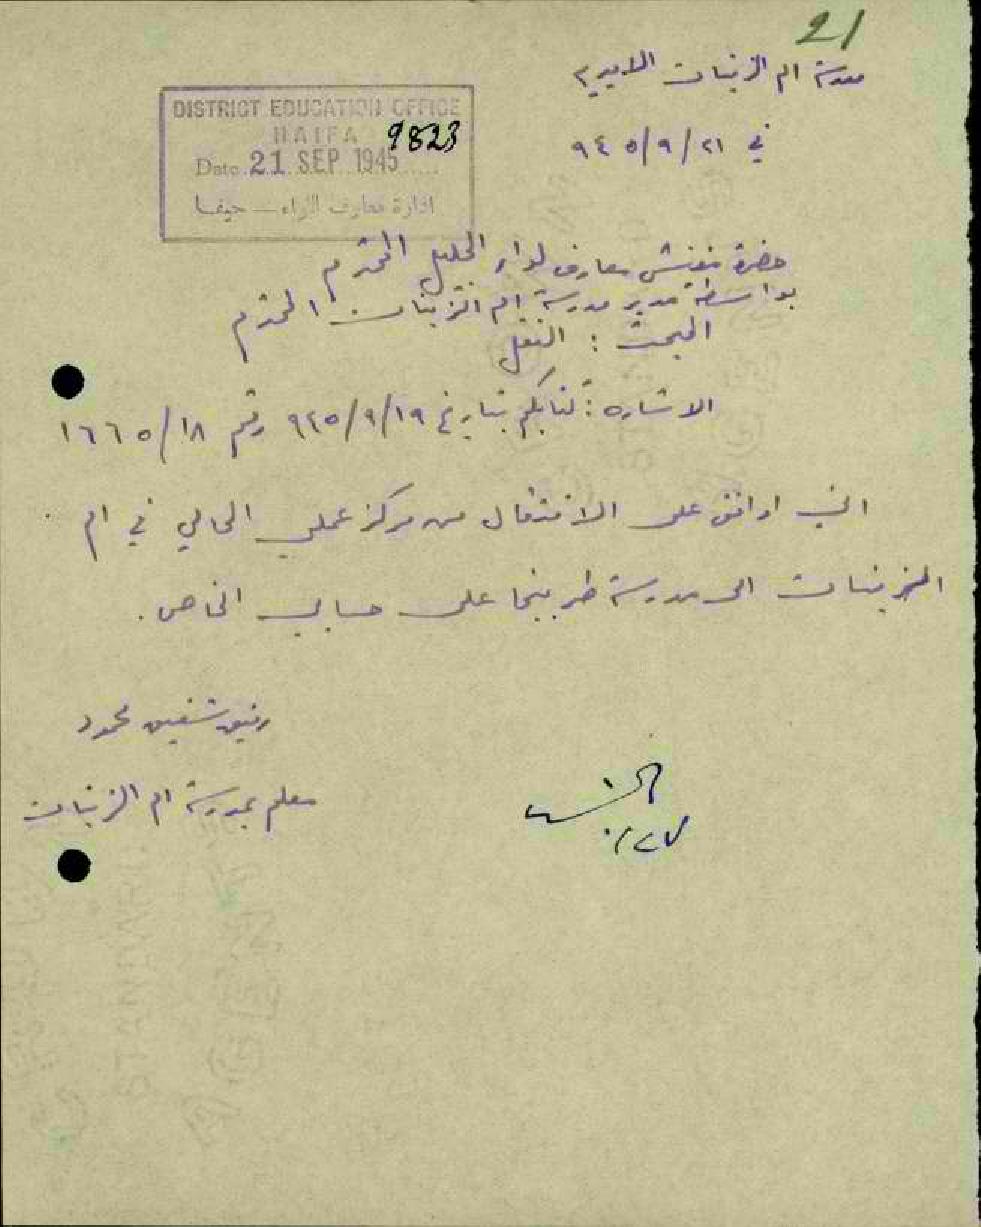 21
مدرسة ام الزينات الاميرية
في ٢١/٩/٩٤٥
DISTRICT EDUCATION OFFICE
HAIFA 9823
Date 21 SEP 1945
ادارة معارف اللواء — حيفا
حضرة مفتش معارف لواء الجليل المحترم
بواسطة مدير مدرسة ام الزينات المحترم
المبحث : النقل
الاشارة : كتابكم بتاريخ ٩٤٥/٩/١٩ رقم ١٦٦٥/١٨
اني اوافق على الانتقال من مركز عملي الحالي في ام
الزينات الى مدرسة طربيخا على حسابي الخاص .
رفيق شفيق محمود
معلم بمدرسة ام الزينات